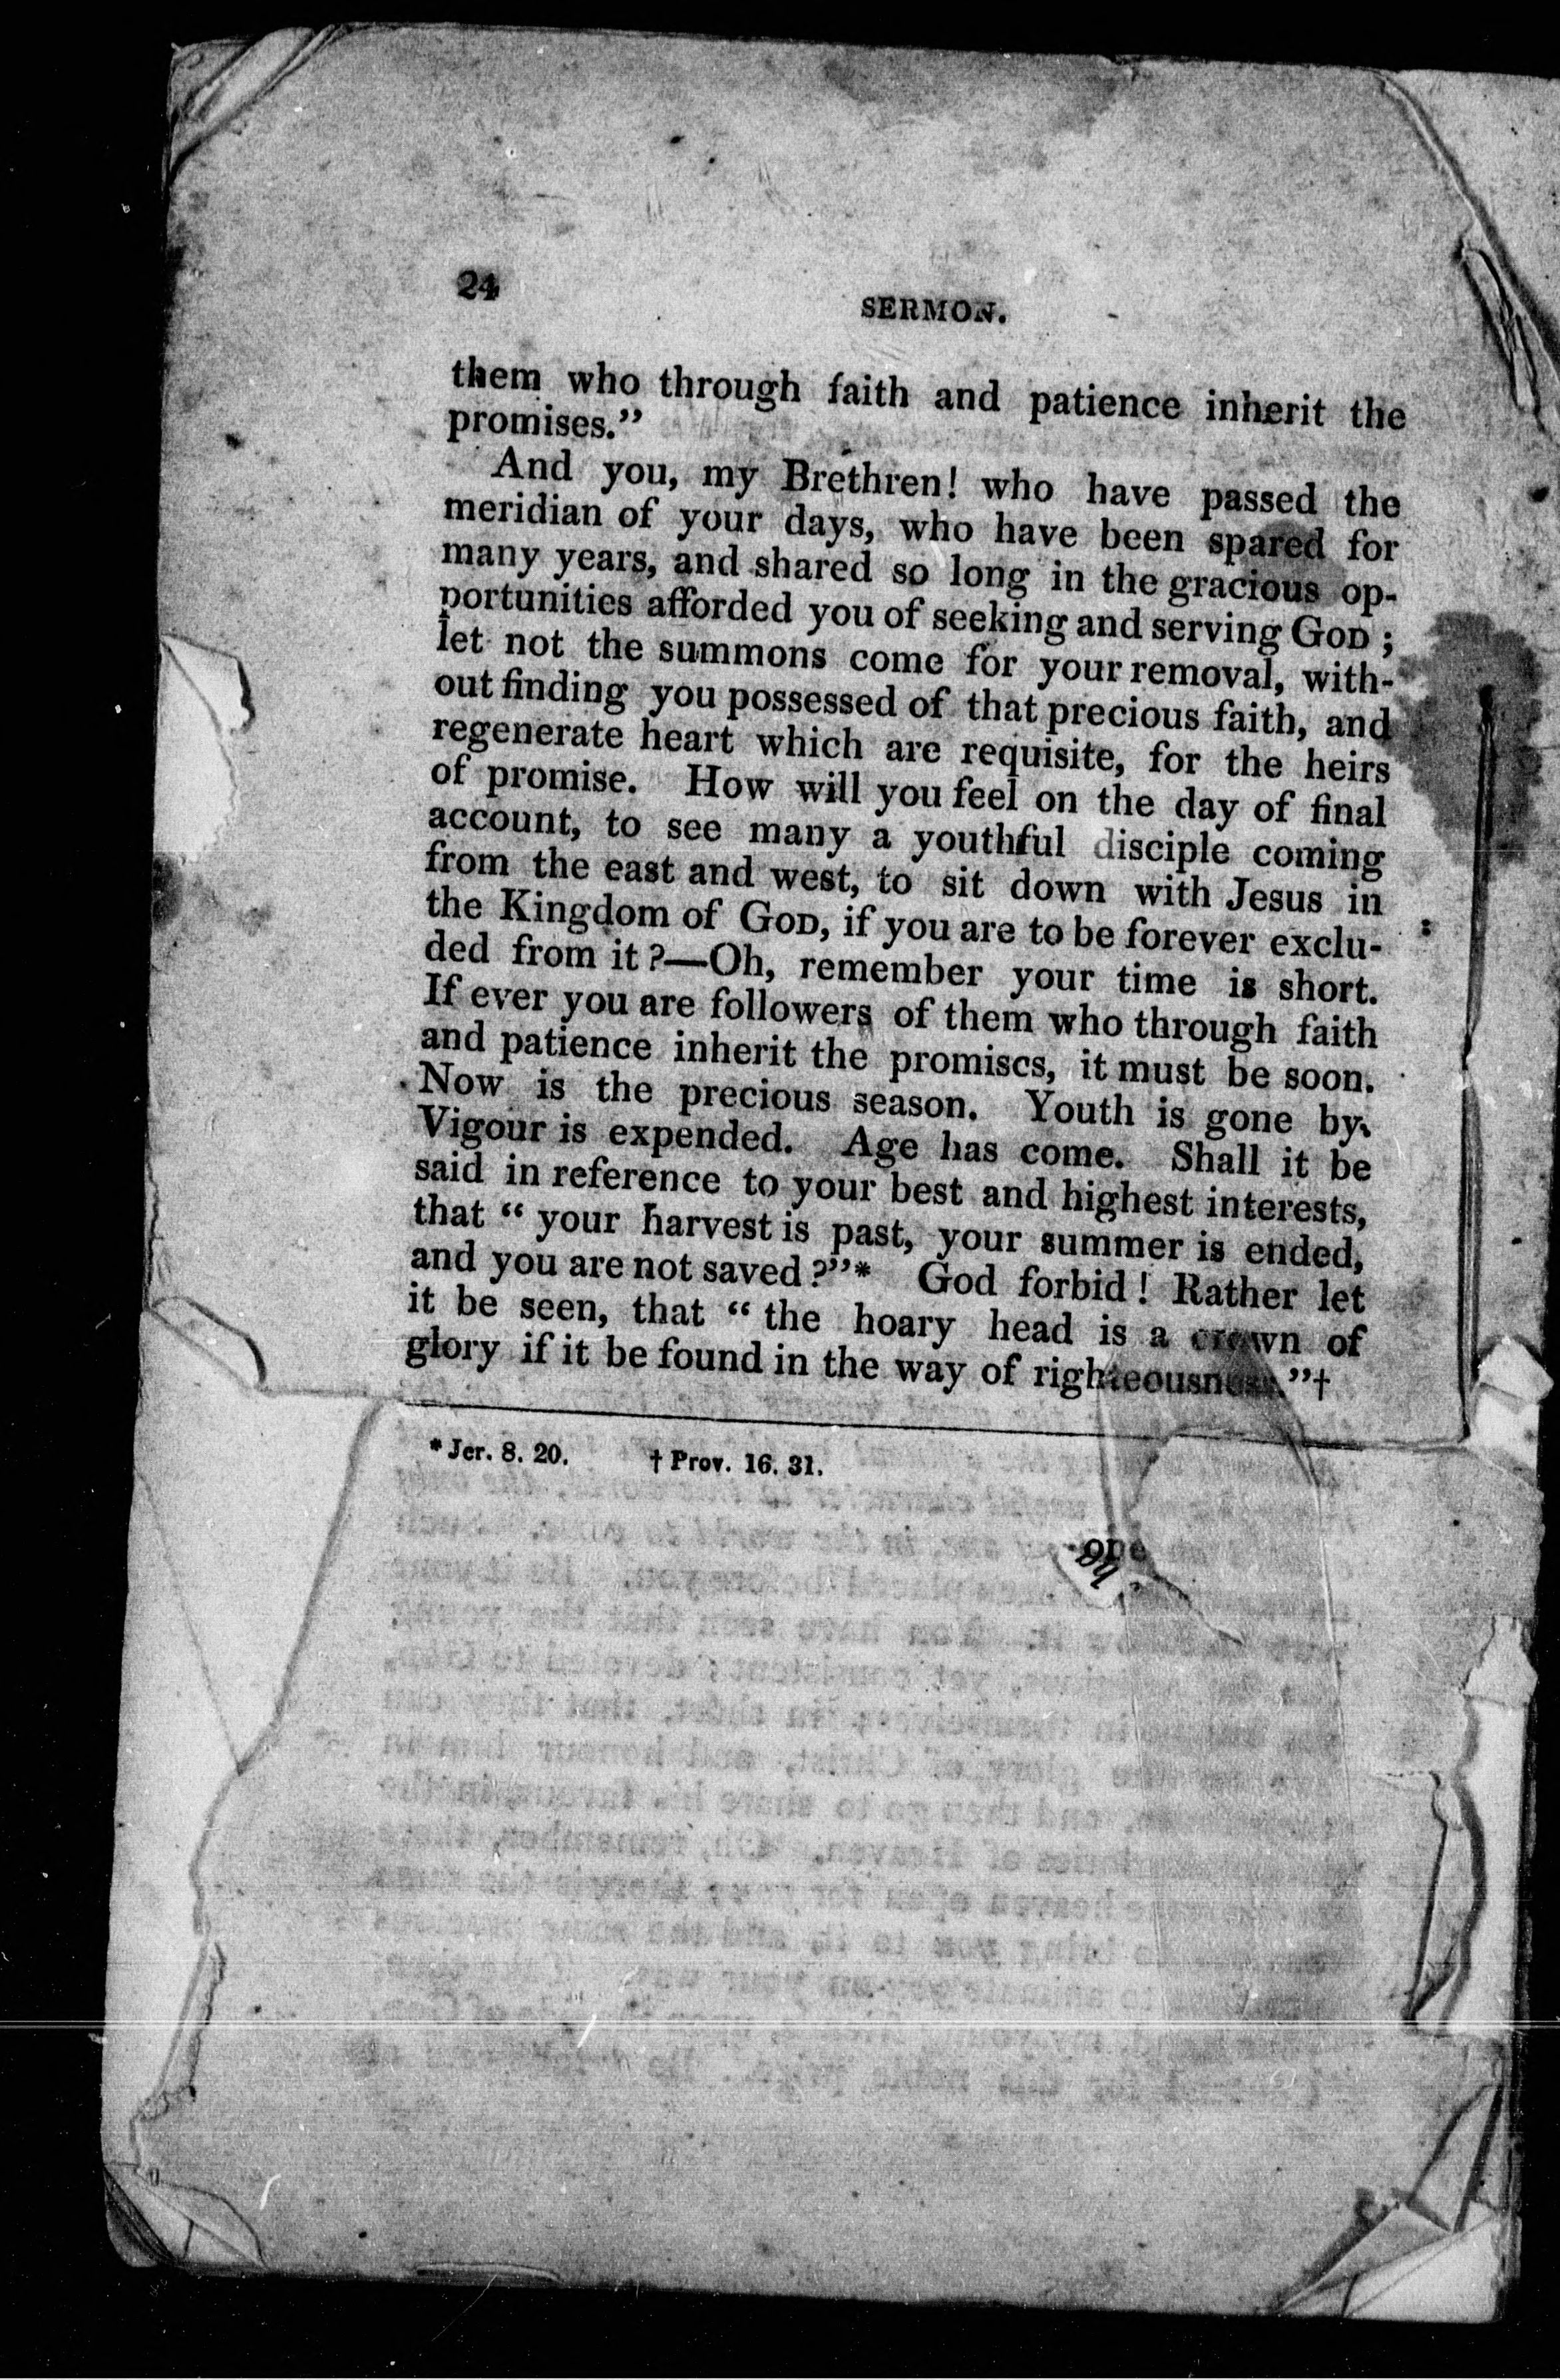 24
SERMON.
them who through faith and patience inherit the
promises."
And you, my Brethren! who have passed the
meridian of your days, who have been spared for
many years, and shared so long in the gracious op-
portunities afforded you of seeking and serving GOD;
let not the summons come for your removal, with-
out finding you possessed of that precious faith, and
regenerate heart which are requisite, for the heirs
of promise. How will you feel on the day of final
account, to see many a youthful disciple coming
from the east and west, to sit down with Jesus in
the Kingdom of GOD, if you are to be forever exclu-
ded from it?—Oh, remember your time is short.
If ever you are followers of them who through faith
and patience inherit the promises, it must be soon.
Now is the precious season. Youth is gone by.
Vigour is expended. Age has come. Shall it be
said in reference to your best and highest interests,
that "your harvest is past, your summer is ended,
and you are not saved?"* God forbid! Rather let
it be seen, that "the hoary head is a crown of
glory if it be found in the way of righteousness."†
* Jer. 8. 20. † Prov. 16. 31.
ope